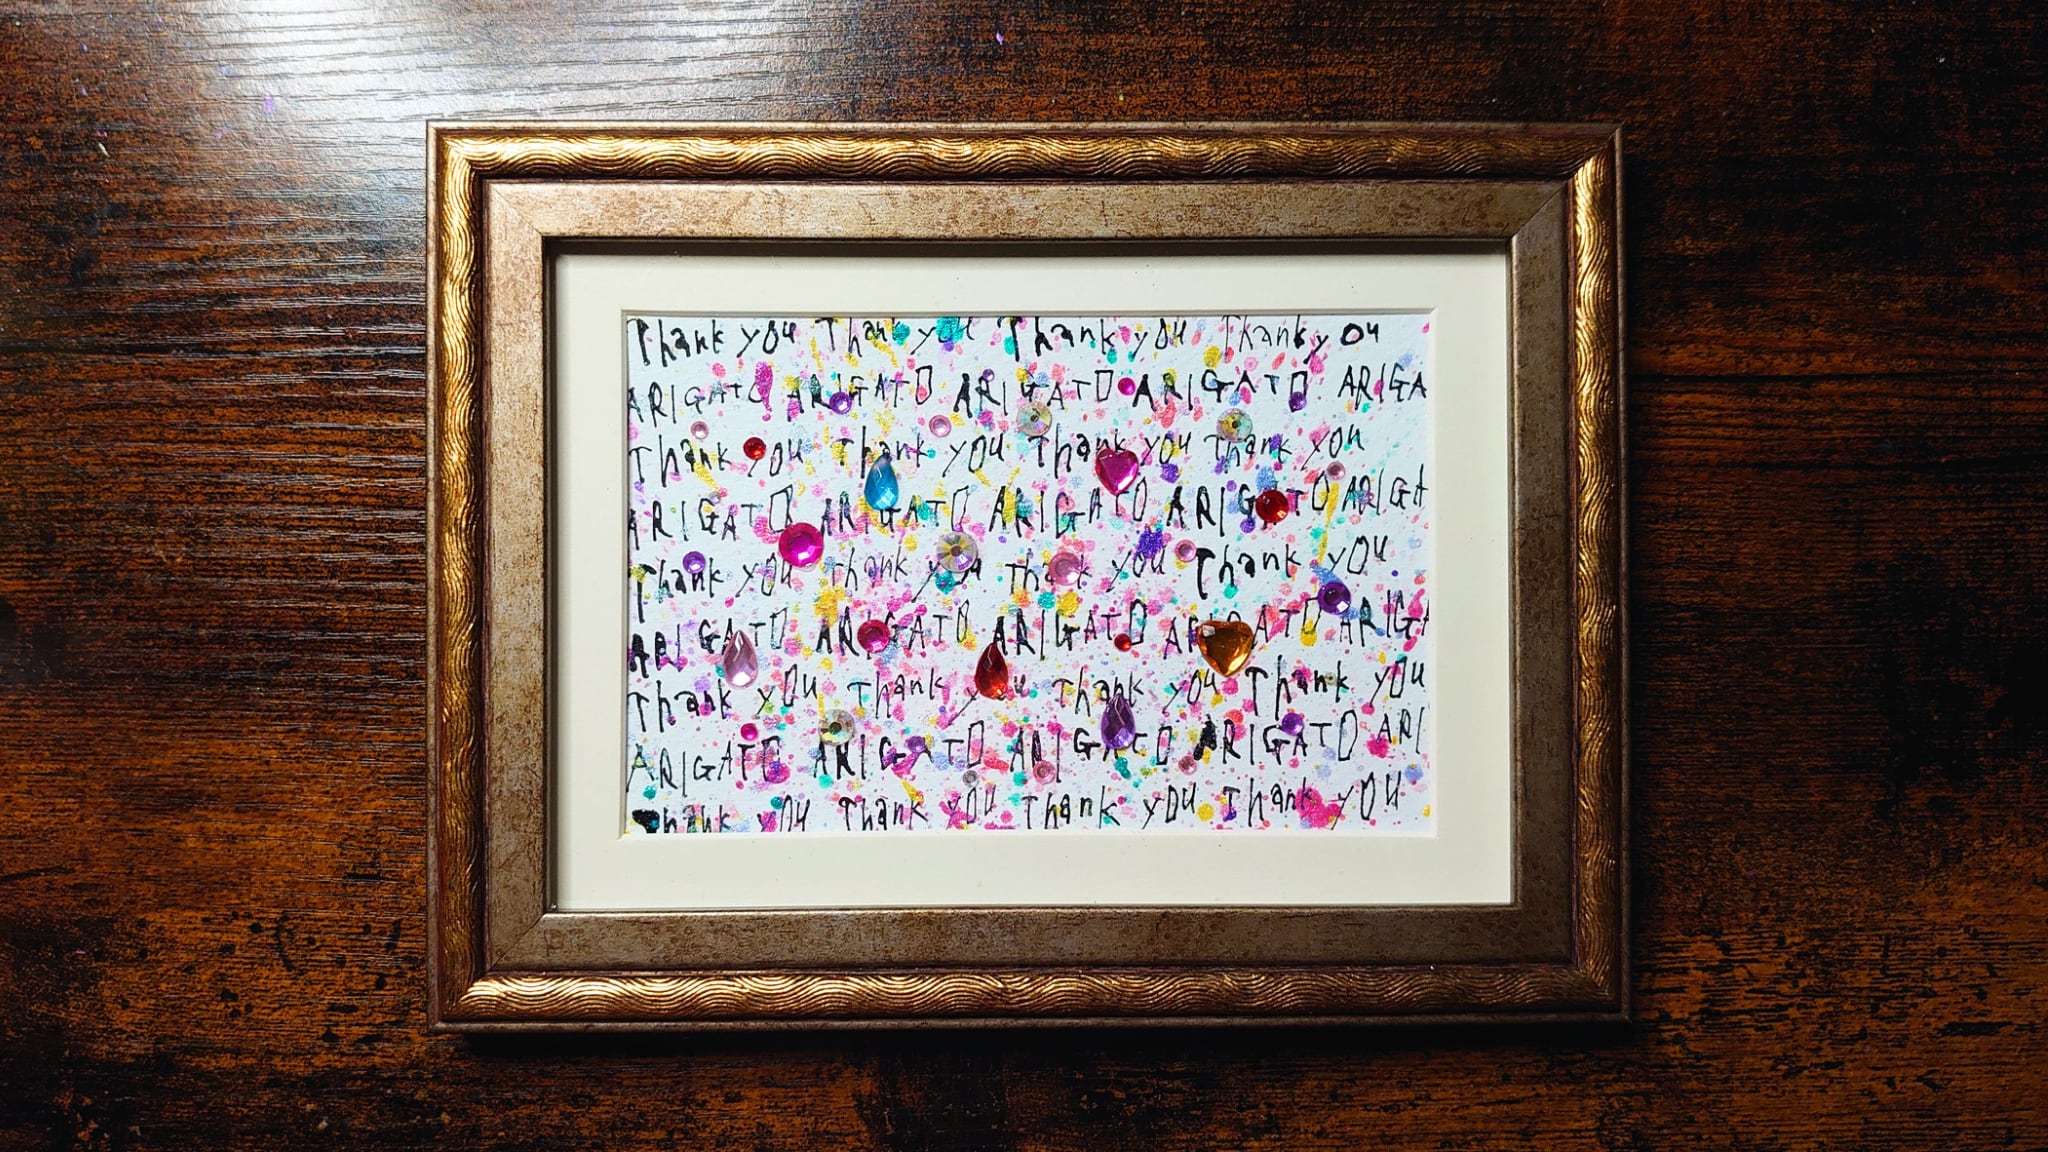 Thank you Thank you Thank you Thank you
ARIGATO ARIGATO ARIGATO ARIGATO ARIGA
Thank you Thank you Thank you Thank you
ARIGATO ARIGATO ARIGATO ARIGATO ARIGA
Thank you Thank you Thank you Thank you
ARIGATO ARIGATO ARIGATO ARIGATO ARIGA
Thank you Thank you Thank you Thank you
ARIGATO ARIGATO ARIGATO ARIGATO ARI
Thank you Thank you Thank you Thank you